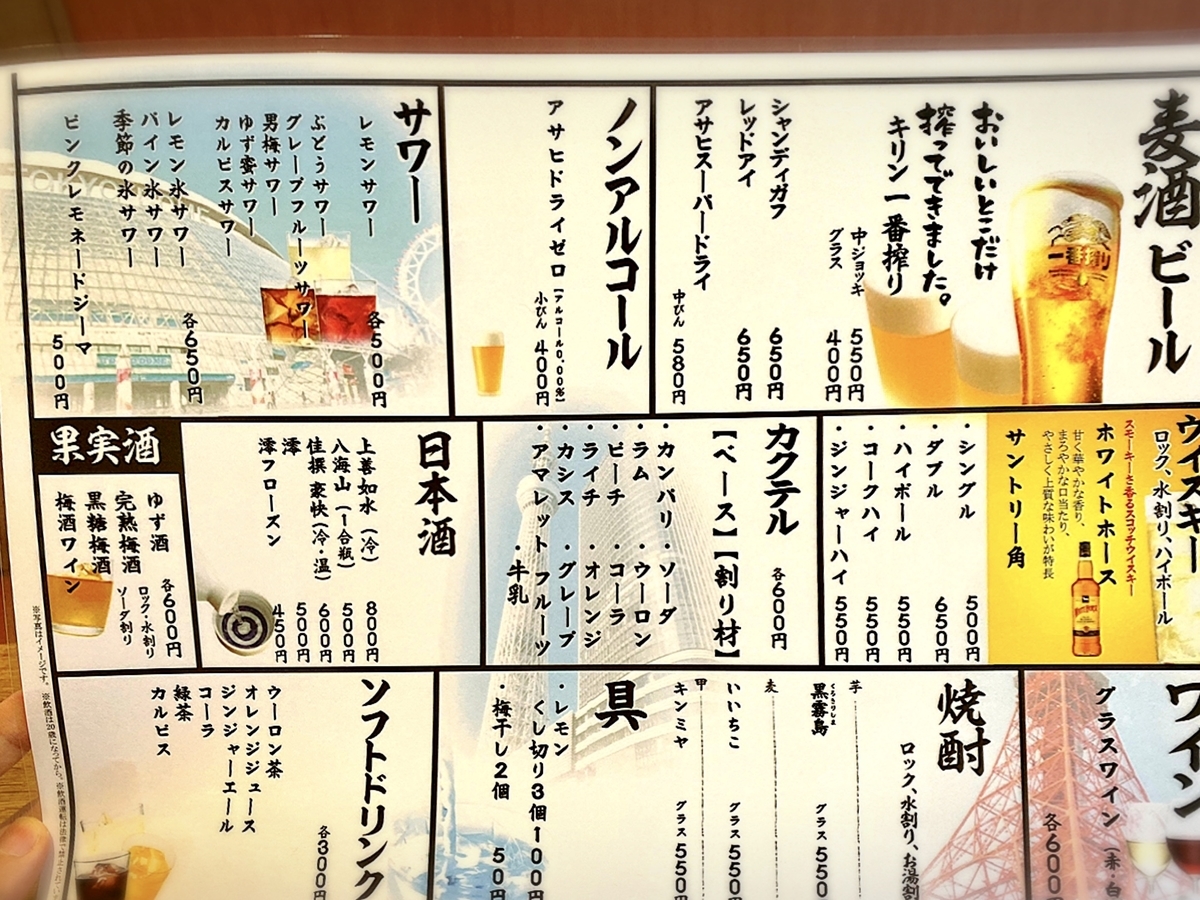 麦酒ビール
一番搾り
おいしいとこだけ
搾ってできました。
キリン一番搾り
中ジョッキ 550円
グラス 400円
シャンディガフ 650円
レッドアイ 650円
アサヒスーパードライ 中びん 580円
ノンアルコール
アサヒドライゼロ
[アルコール0.00%]
小びん 400円
サワー
レモンサワー
ぶどうサワー
グレープフルーツサワー
男梅サワー
ゆず蜜サワー
カルピスサワー
各500円
レモン氷サワー
パイン氷サワー
季節の氷サワー
各650円
ピンクレモネードジーマ 500円
ウイスキー
ロック、水割り、ハイボール
スモーキーさ香るスコッチウイスキー
ホワイトホース
甘く華やかな香り、
まろやかな口当たり、
やさしく上質な味わいが特長
サントリー角
・シングル 500円
・ダブル 650円
・ハイボール 550円
・コークハイ 550円
・ジンジャーハイ 550円
カクテル 各600円
【ベース】【割り材】
・カンパリ ・ソーダ
・ラム ・ウーロン
・ピーチ ・コーラ
・ライチ ・オレンジ
・カシス ・グレープフルーツ
・アマレット ・牛乳
日本酒
上善如水(冷) 800円
八海山(一合瓶) 500円
佳撰 豪快(冷・温) 600円
澪 500円
澪フローズン 450円
果実酒
ゆず酒
完熟梅酒
黒糖梅酒
梅酒ワイン
各600円
ロック・水割り
ソーダ割り
ワイン
グラスワイン(赤・白
各600円
焼酎
ロック、水割り、お湯割
芋
黒霧島 グラス 550
くろきりしま
麦
いいちこ グラス 550円
甲
キンミヤ グラス 550円
具
・レモン
くし切り3個 100円
・梅干し2個 50円
ソフトドリンク
各300円
ウーロン茶
オレンジジュース
ジンジャーエール
コーラ
緑茶
カルピス
※写真はイメージです。 ※飲酒は20歳になってから。 ※飲酒運転は法律で禁止されています